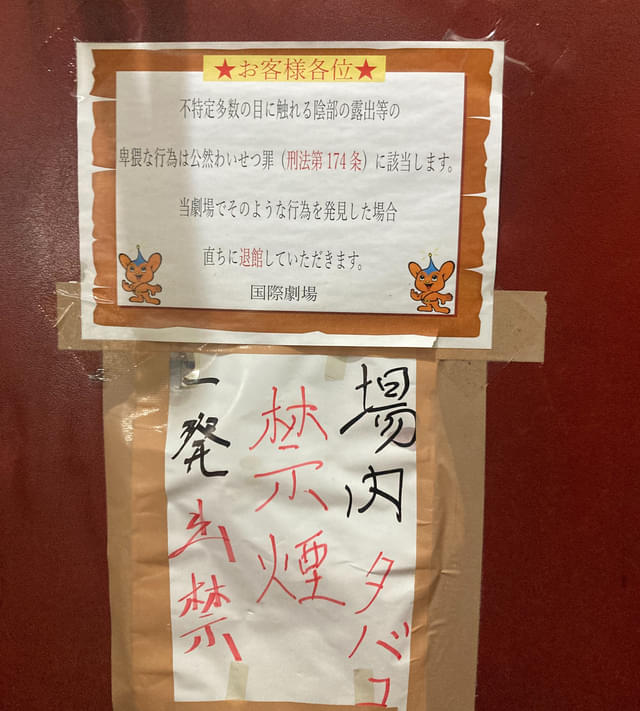 ★お客様各位★
不特定多数の目に触れる陰部の露出等の
卑猥な行為は公然わいせつ罪（刑法第174条）に該当します。
当劇場でそのような行為を発見した場合
直ちに退館していただきます。
国際劇場
場内タバコ
禁煙
一発出禁